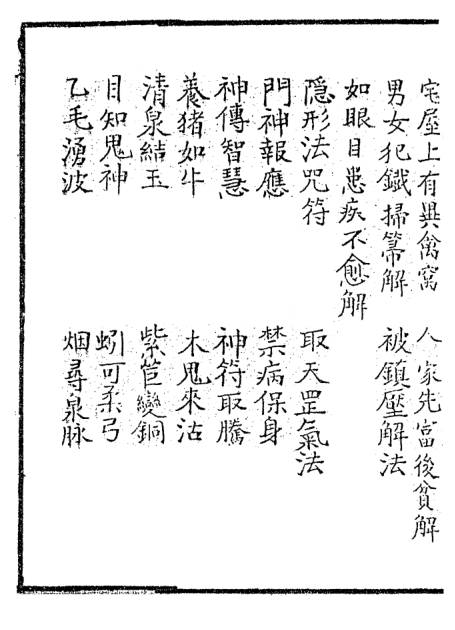 宅屋上有異禽窩　人家先富後貧解
男女犯鐵掃箒解　被鎮壓解法
如眼目患疾不愈解
隱形法咒符　取天罡氣法
門神報應　禁病保身
神傳智慧　神符取騰
養猪如牛　木鬼來沽
清泉結玉　紫笆變銅
目知鬼神　蚓可柔弓
乙毛湧波　烟尋泉脉